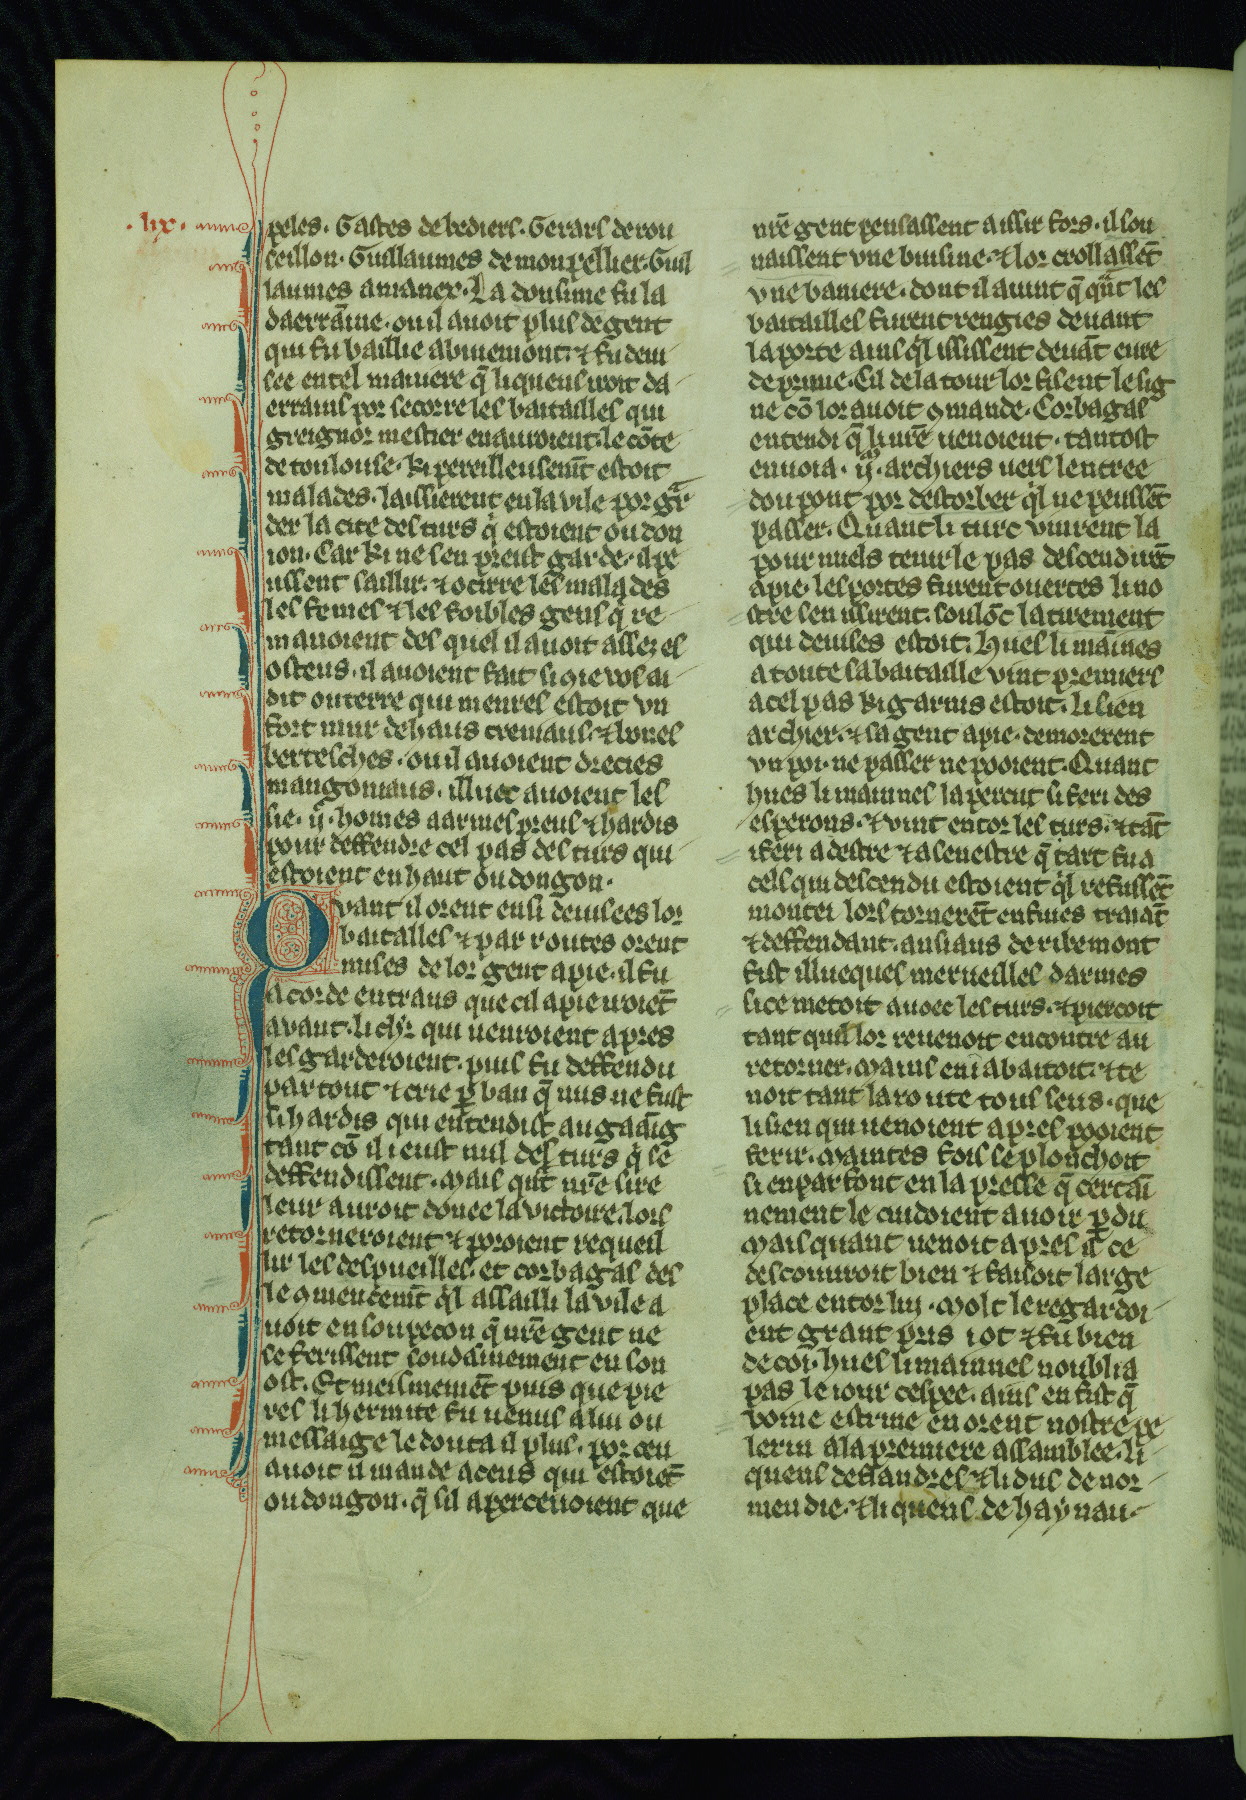 .lix.
peles. Gastes de bediers. Gerars de rou
ceillon. Guillaumes de monpellier. Guil
laumes amanex. La dousime fu la
daerraine. ou il auoit plus de gent
qui fu baillie abuiemont. ⁊ fu deui
see en tel maniere q̄ li queus iroit da
erains por secorre les batailles qui
greignor mestier en auroient. le cōte
de toulouse. ki pereilleusem̄t estoit
malades. laissierent en la vile por gar
der la cite des turs q̍ estoient ou don
ion. Car ki ne sen prenist garde. il pe
ussent saillir. ⁊ ocirre les malades
les femes ⁊ les foibles gens q̍ re
manoient des quel il auoit assez el
ostens. il auoient fait si qie vos ai
dit outerre qui meures estoit vn
fort mur de haus cremaus. ⁊ bones
bertesches. ou il auoient drecies
mangoniaus. illuec auoient les
sie. ij. homes a armes preus ⁊ hardis
pour deffendre cel pas des turs qui
estoient en haut ou dongon.
Qvant il orent ensi deuisees lor
batailles ⁊ par routes orent
mises de lor gent a pie. il fu
acorde entraus que cil a pie iroiēt
auant. li chr̄ qui uenroient apres
les garderoient. puis fu deffendu
par tout ⁊ crie p̱ ban q̄ nus ne fust
si hardis qui entendist au gaaīg
tant cō il i eust nul des turs q̍ se
deffendissent. Mais qn̄t nr̄e sire
leur auroit donee la victoire. lors
retorneroient ⁊ poroient requeil
lir les despueilles. et corbagas des
le 9mencem̄t q̍l assailli la vile a
uoit en soupecon q̄ nr̄e gent ne
se ferissent soudainement en son
ost. Et meismemēt puis que pie
res li hermite fu uenus a lui ou
messaige le douta il plus. por ceu
auoit il mande a ceus qui estoiēt
ou dongon. q̄ sil aperceuoient que
nr̄e gent pensassent a issir fors. il son
naissent vne buisine. ⁊ lor crollassēt
vne baniere. dont il auint q̄ qn̄t les
batailles furent rengies deuant
la porte ains q̍l ississent deuāt eure
de prime. Cil de la tour lor fisent le sig
ne cō lor auoit 9mande. Corbagas
entendi q̄ li nr̄e uenoient. tantost
enuoia .ij.ᵐ archiers uers lentree
dou pont por destorber q̍l ne peussēt
passer. Quant li turc vinrent la
pour miels tenir le pas descendirēt
a pie. les portes furent ouertes li no
stre sen issirent. soulōc latirement
qui deuises estoit. Hues li māines
a toute sa bataille vint premiers
a cel pas ki garnis estoit. li sien
archier. ⁊ sa gent a pie. demorerent
vn poi. ne passer ne pooient. Quant
hues li mainnes laperent si feri des
esperons. ⁊ vint entor les turs. ⁊ tāt
i feri a destre ⁊ a senestre q̄ tart fu a
cels qui descendu estoient q̍l refussēt
montei lors tornerēt en fuies traiāt
⁊ deffendant. ansiaus de ribemont
fist illueques merueilles darmes
si ce metoit auoec les turs. ⁊ piercoit
tant quil lor reuenoit encontre au
retorner. Maint en i abatoit. ⁊ te
noit tant la route tous seus. que
li sien qui uenoient apres pooient
ferir. Maintes fois se plonchoit
si en parfont en la presse q̄ certai
nement le cuidoient auoir p̱du
Mais quant uenoit apres il ce
descouuroit bien ⁊ faisoit large
place entor lui. Molt le regardoi
ent grant pris i ot ⁊ fu bien
de coi. hues li mainnes noublia
pas le iour cespee. ains en fist q̄
bome estrine en orent nostre pe
lerin a la premiere assamblee. li
queus de flandres ⁊ li dus de nor
mendie. ⁊ li queus de haynau.